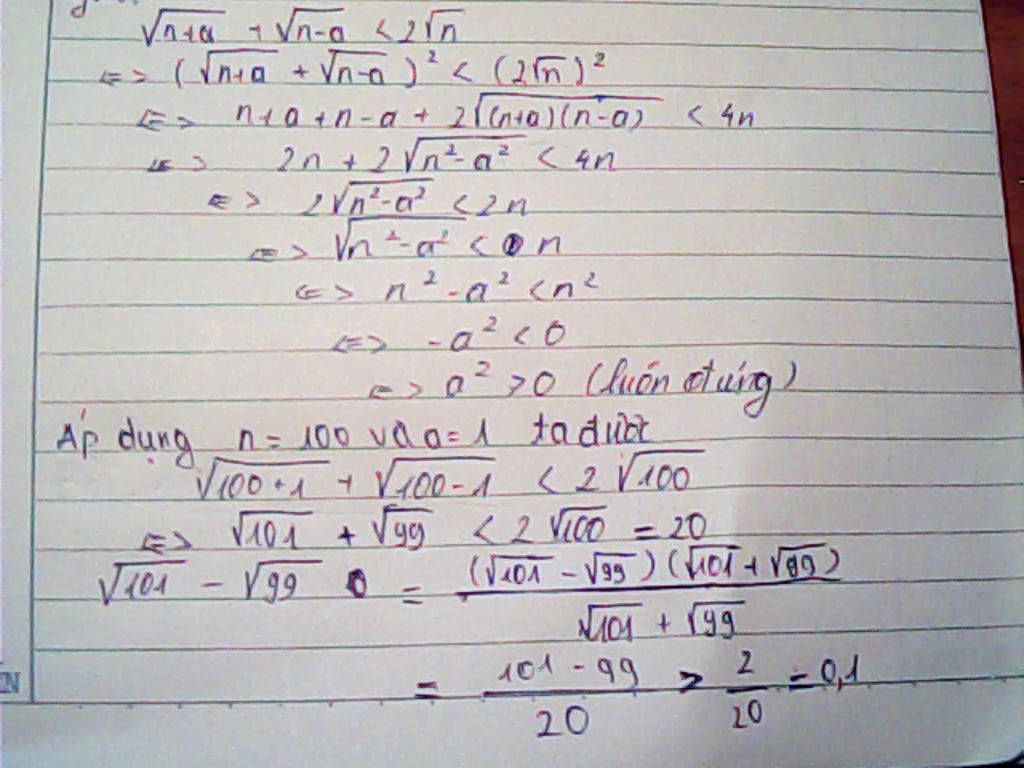 √(n+a) + √(n-a) < 2√n
<=> (√(n+a) + √(n-a))² < (2√n)²
<=> n+a+n-a + 2√((n+a)(n-a)) < 4n
<=> 2n + 2√(n²-a²) < 4n
<=> 2√(n²-a²) < 2n
<=> √(n²-a²) < n
<=> n²-a² < n²
<=> -a² < 0
<=> a² > 0 (luôn đúng)
Áp dụng n = 100 và a = 1 ta được
√(100+1) + √(100-1) < 2√100
<=> √101 + √99 < 2√100 = 20
√101 - √99 = ((√101 - √99)(√101 + √99))/(√101 + √99)
= (101-99)/20 > 2/20 = 0,1